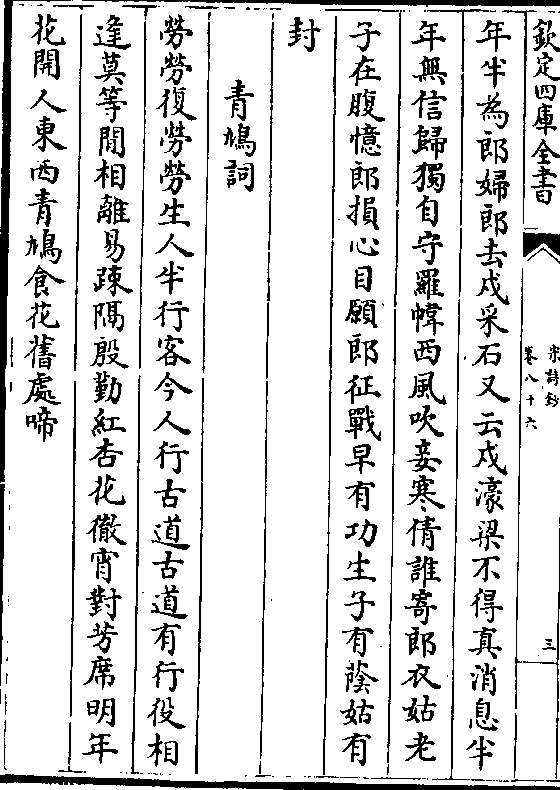 欽定四庫全書
宋詩鈔
卷八十六
三
年半為郎婦郎去戍采石又云戍濠梁不得真消息半
年無信歸獨自守羅幃西風吹妾寒倩誰寄郎衣姑老
子在腹憶郎損心目願郎征戰早有功生子有蔭姑有
封
青鳩詞
勞勞復勞勞生人半行客今人行古道古道有行役相
逢莫等閒相離易疎隔殷勤紅杏花徹宵對芳席明年
花開人東西青鳩食花舊處啼